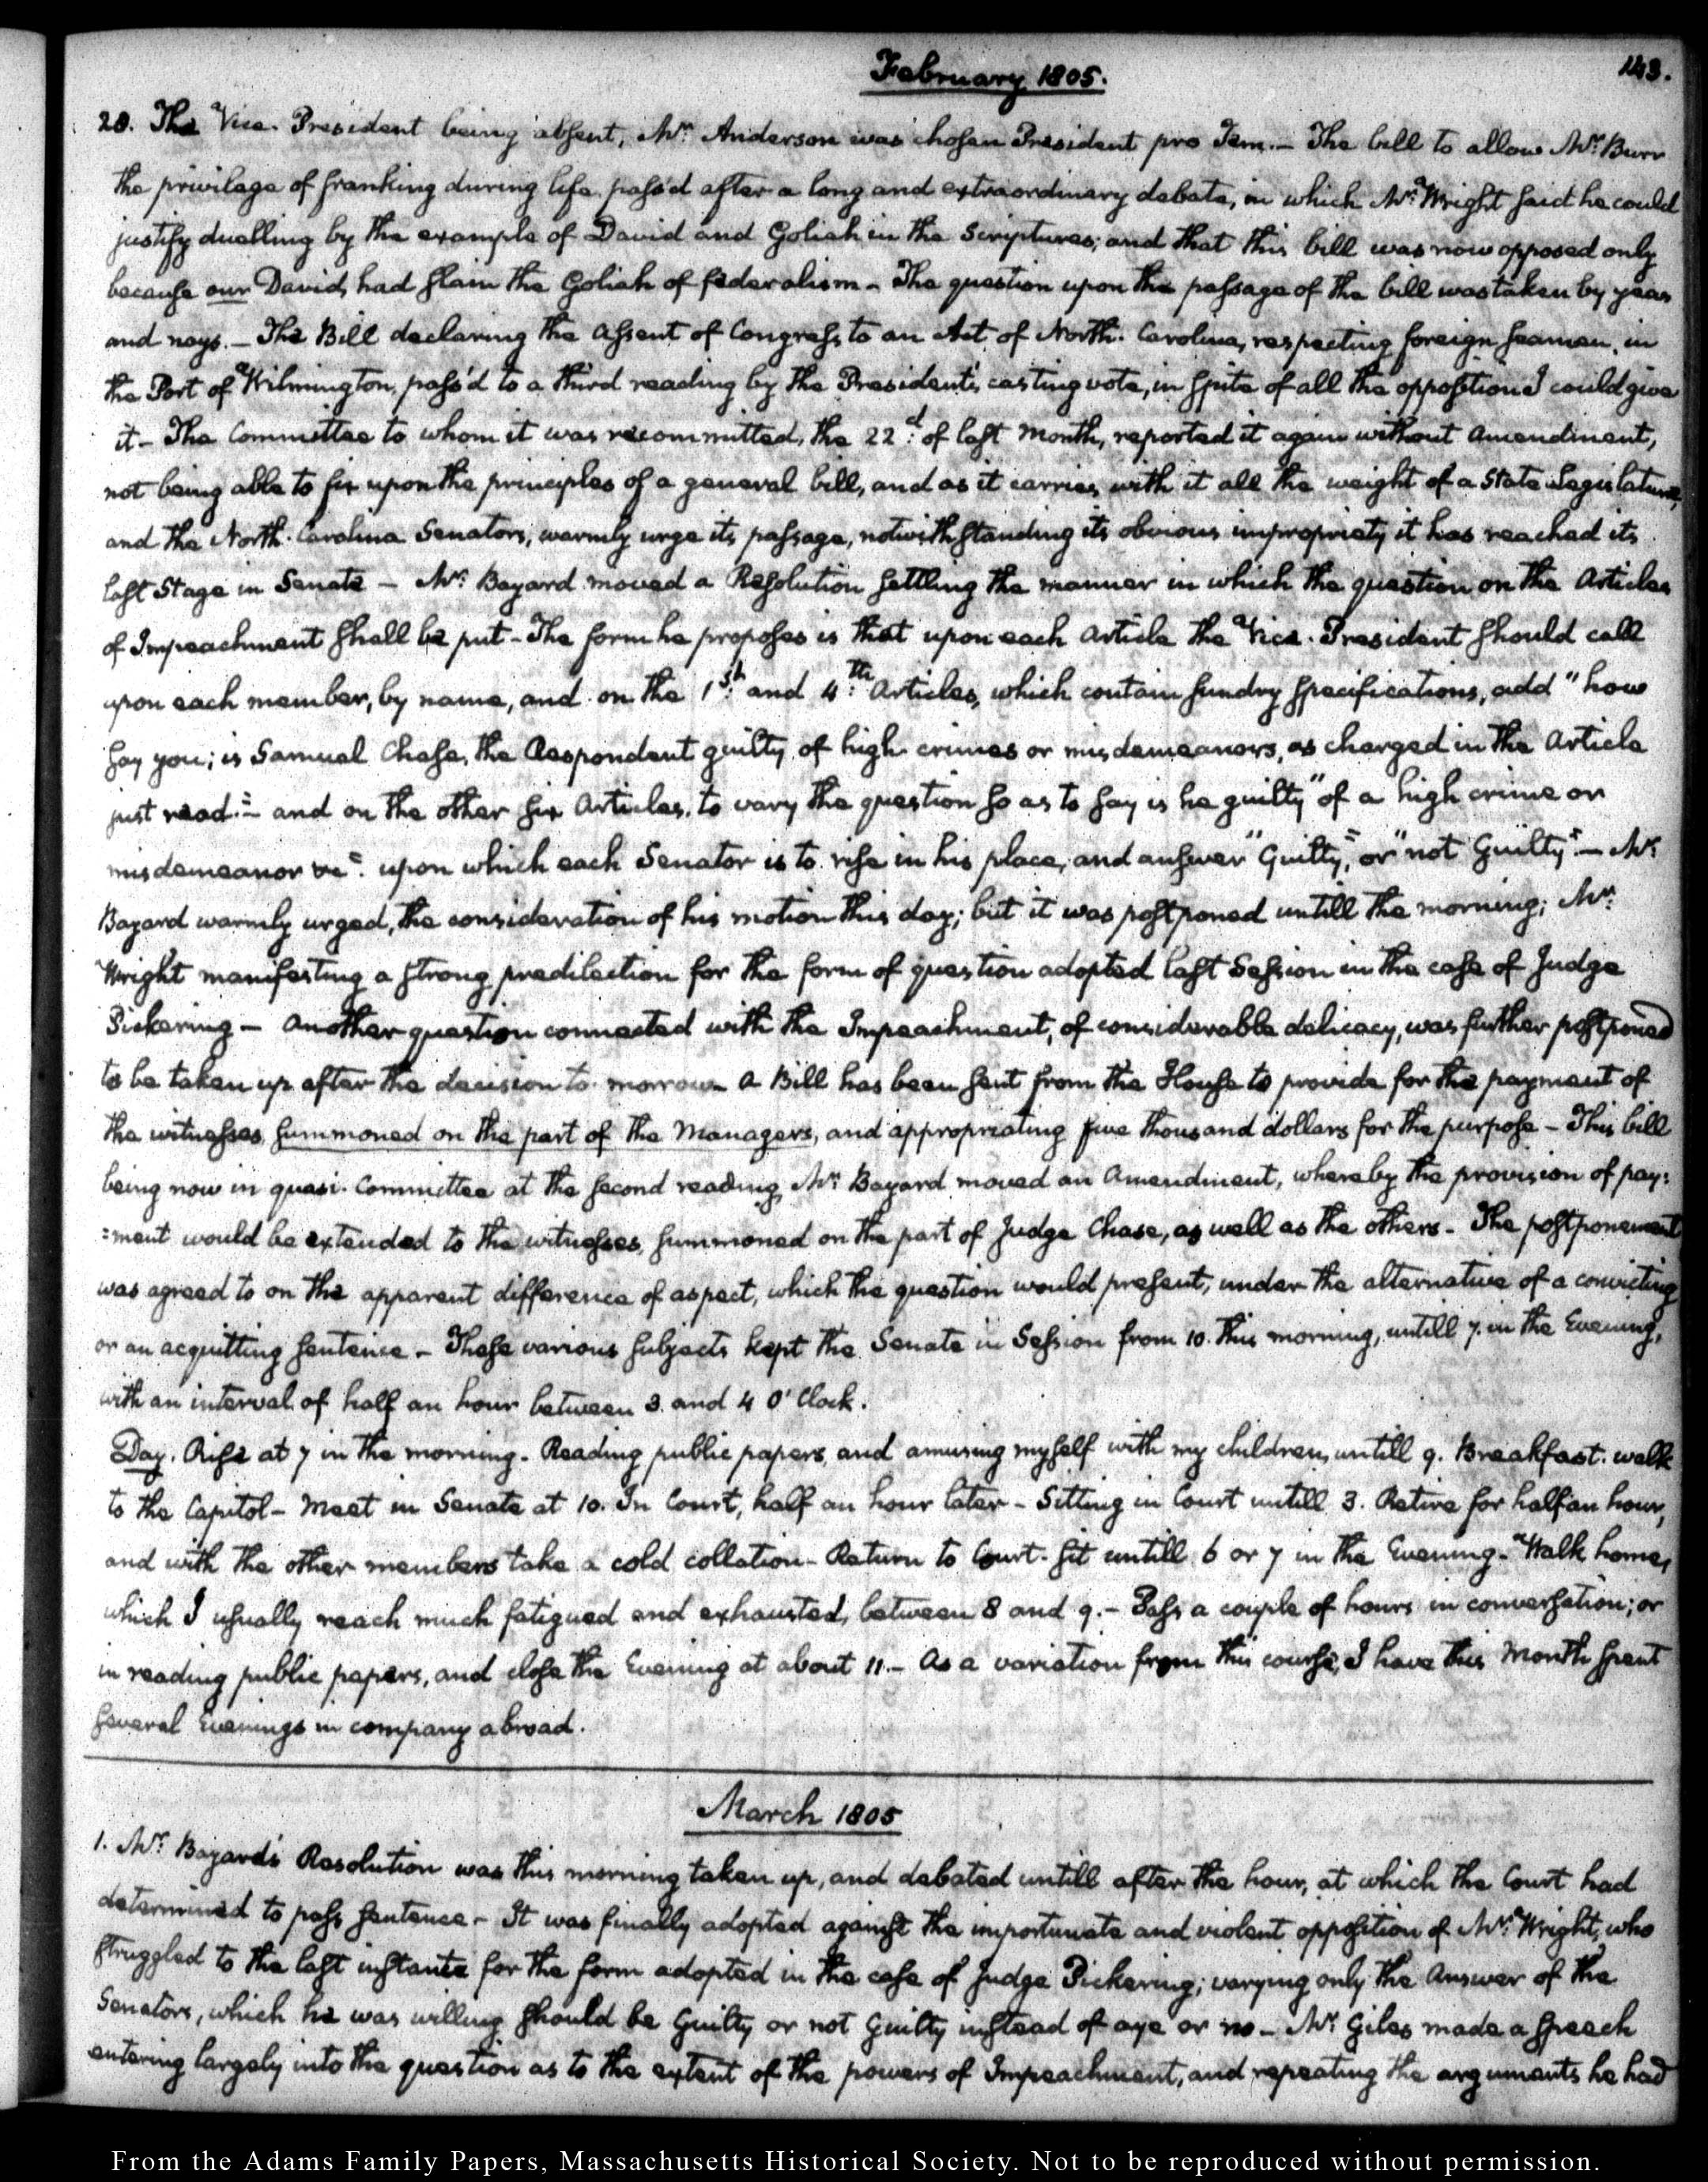 February 1805.
143.
28. The Vice-President being absent, Mr. Anderson was chosen President pro Tem.— The bill to allow Mr. Burr
the privilege of franking during life, pass'd after a long and extraordinary debate, in which Mr. Wright said he could
justify duelling by the example of David and Goliah in the Scriptures; and that this bill was now opposed only
because our David, had slain the Goliah of federalism— The question upon the passage of the bill was taken by yeas
and nays.— The Bill declaring the assent of Congress to an Act of North-Carolina, respecting foreign seamen, in
the Port of Wilmington, pass'd to a third reading by the President's casting vote, in spite of all the opposition I could give
it— The Committee to whom it was recommitted, the 22d: of last month, reported it again without Amendment,
not being able to fix upon the principles of a general bill, and as it carries with it all the weight of a State Legislature,
and the North-Carolina Senators, warmly urge its passage, notwithstanding its obvious impropriety it has reached its
last Stage in Senate— Mr. Bayard moved a Resolution settling the manner in which the question on the Articles
of Impeachment shall be put— The form he proposes is that upon each Article the Vice-President should call
upon each member, by name, and on the 1st: and 4th: Articles, which contain sundry specifications, add "how
say you; is Samuel Chase, the Respondent guilty of high crimes or misdemeanors, as charged in the Article
just read."— and on the other six Articles, to vary the question so as to say is he guilty "of a high crime or
misdemeanor &c". upon which each Senator is to rise in his place, and answer "Guilty," or "not Guilty"— Mr.
Bayard warmly urged, the consideration of his motion this day; but it was postponed untill the morning; Mr.
Wright manifesting a strong predilection for the form of question adopted last Session in the case of Judge
Pickering— Another question connected with the Impeachment, of considerable delicacy, was further postponed
to be taken up after the decision to-morrow— A Bill has been sent from the House to provide for the payment of
the witnesses, summoned on the part of the Managers, and appropriating five thousand dollars for the purpose— This bill
being now in quasi-Committee at the second reading, Mr. Bayard moved an Amendment, whereby the provision of pay:
:ment would be extended to the witnesses, summoned on the part of Judge Chase, as well as the others— The postponement
was agreed to on the apparent difference of aspect, which the question would present, under the alternative of a convicting
or an acquitting sentence— These various subjects kept the Senate in Session from 10. this morning, untill 7. in the Evening,
with an interval of half an hour between 3. and 4 O'Clock.
Day. Rise at 7 in the morning— Reading public papers, and amusing myself with my children, untill 9. Breakfast. walk
to the Capitol— Meet in Senate at 10. In Court, half an hour later— Sitting in Court untill 3. Retire for half an hour,
and with the other members take a cold collation— Return to Court. Sit untill 6 or 7 in the Evening— Walk home,
which I usually reach much fatigued and exhausted, between 8 and 9.— Pass a couple of hours in conversation; or
in reading public papers, and close the Evening at about 11.— As a variation from this course, I have this Month spent
several Evenings in company abroad.
March 1805
1. Mr. Bayard's Resolution was this morning taken up, and debated untill after the hour, at which the Court had
determined to pass sentence— It was finally adopted against the importunate and violent opposition of Mr. Wright, who
struggled to the last instante for the form adopted in the case of Judge Pickering; varying only the Answer of the
Senators, which he was willing should be Guilty or not Guilty instead of aye or no— Mr. Giles made a speech
entering largely into the question as to the extent of the powers of Impeachment, and repeating the arguments he had
From the Adams Family Papers, Massachusetts Historical Society. Not to be reproduced without permission.